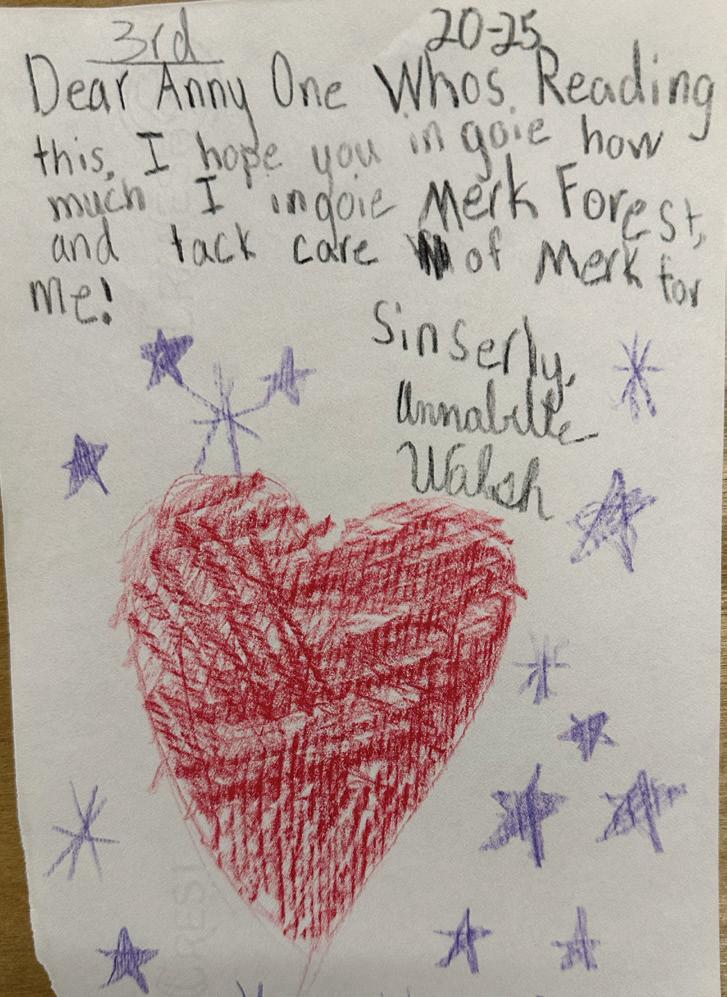 3rd 20-25
Dear Anny One Whos Reading
this, I hope you in goie how
much I ingoie Merk Forest,
and tack care of Merk for
me!
Sinserly,
Annabelle
Walsh